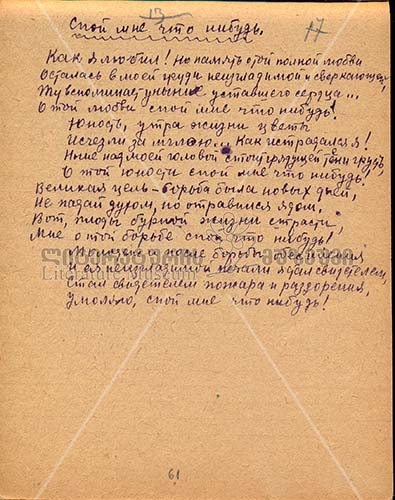 13
17
Спой мне что нибудь.
Как я любил! Но память этой полной любви
Осталась в моей груди неизгладимой и сверкающей,
уставшего сердца...
О той любви спой мне что нибудь!
Юность, утра жизни цветы
Исчезли за мглою... Как исстрадался я!
Ныне над моей головой стоит грядущей тени грудь,
О той юности спой мне что нибудь!
Великая цель - борьба была новых дней,
Не падай духом, но отравился ядом,
Вот, плоды бурной жизни страсти,
Мне о той борьбе спой что нибудь!
после борьбы
и неизгладимой печали я дал свидетелем,
Стал свидетелем пожара и раздорения,
Умоляю, спой мне что нибудь!
ლიტერატურის მუზეუმი
Literature Museum
61